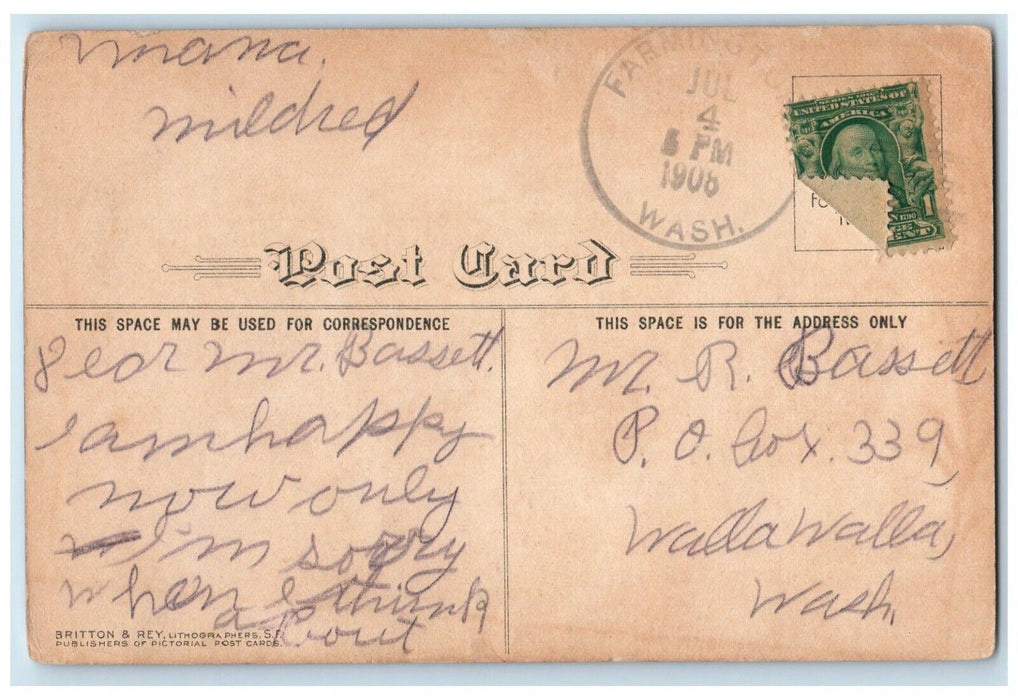 mama.
mildred
FARMINGTO
JUL
4
5 PM
1908
WASH.
SERIES 1902
UNITED STATES OF
AMERICA
1790
1
CENT
Post Card
THIS SPACE MAY BE USED FOR CORRESPONDENCE
Dear Mr. Bassett.
I am happy
now only
I'm sorry
when I think
about
BRITTON & REY, LITHOGRAPHERS, S.F.
PUBLISHERS OF PICTORIAL POST CARDS.
THIS SPACE IS FOR THE ADDRESS ONLY
Mr. R. Bassett
P. O. box. 339,
Walla Walla,
Wash,